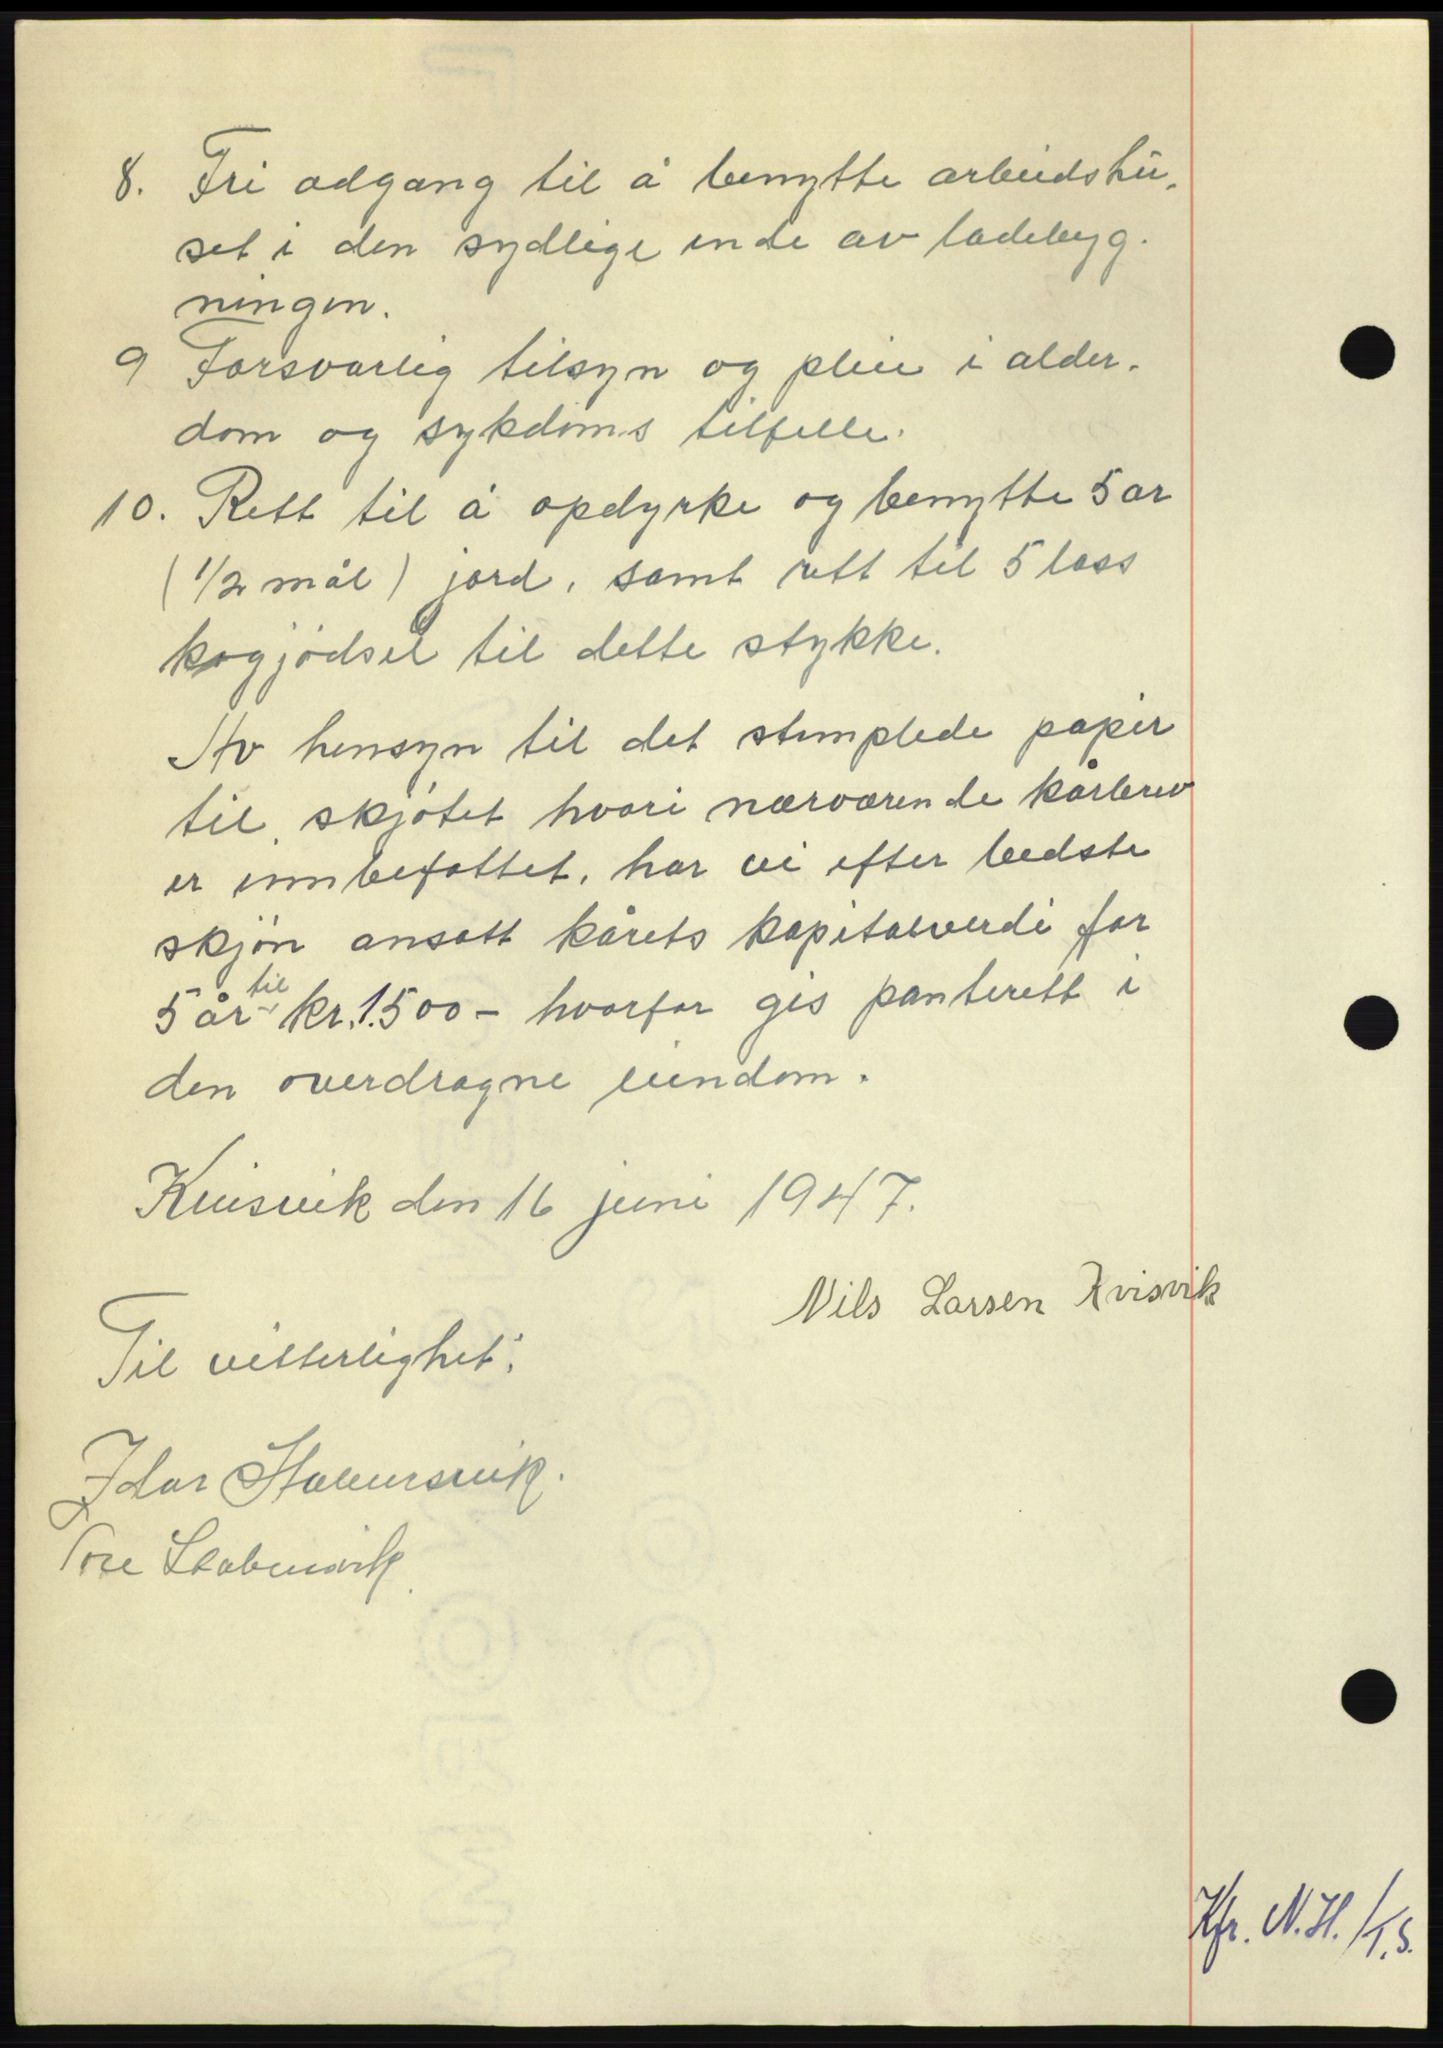 8. Fri adgang til å benytte arbeidshu-
set i den sydlige ende av ladebyg-
ningen.
9 Forsvarlig tilsyn og pleie i alder-
dom og sykdoms tilfelle.
10. Rett til å opdyrke og benytte 5 ar
(1/2 mål) jord, samt rett til 5 lass
kogjödsel til dette stykke.
Av hensyn til det stemplede papir
til skjötet hvori nærværende kårbrev
er innbefattet, har vi efter bedste
skjön ansatt kårets kapitalverdi for
5 år til kr. 1.500 - hvorfor gis panterett i
den overdragne eiendom.
Kvisvik den 16 juni 1947.
Nils Larsen Kvisvik
Til vitterlighet:
Idar Stabensvik.
Tore Stabensvik
Kfr. N.H./T.S.